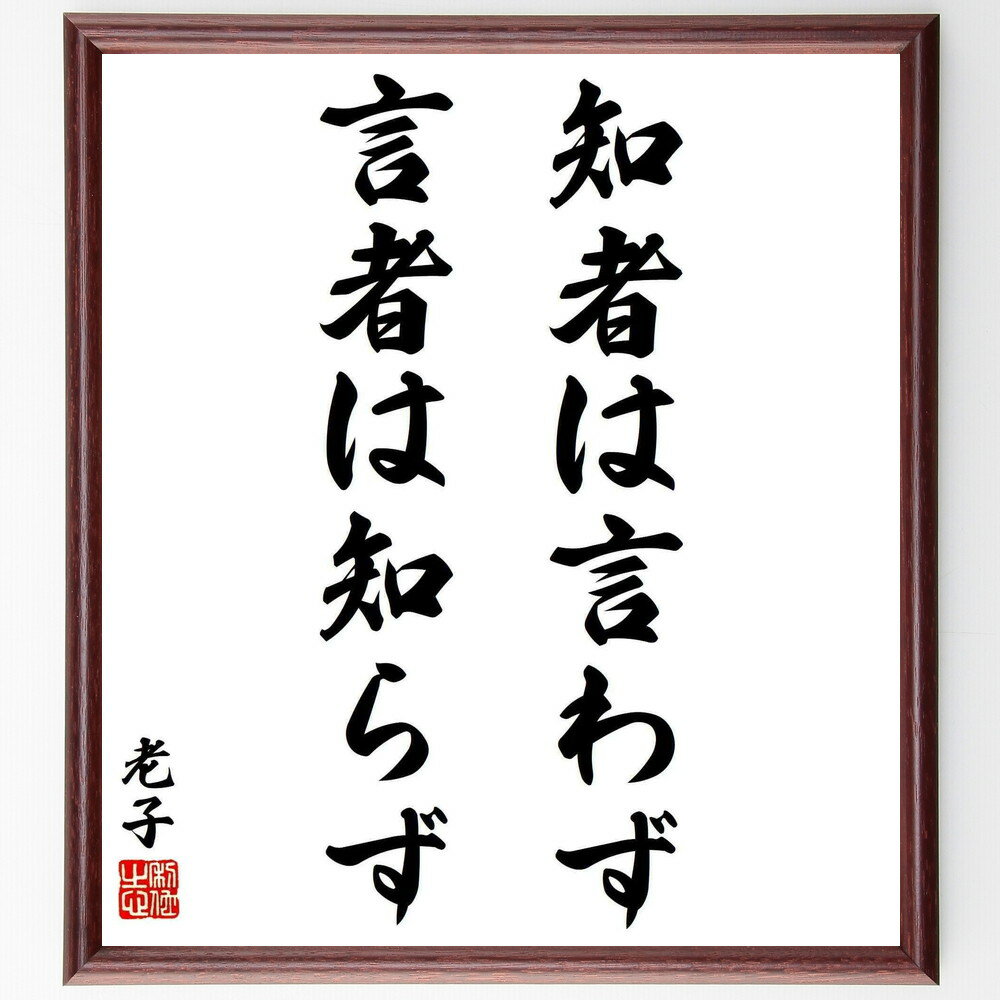 知者は言わず
言者は知らず
老子